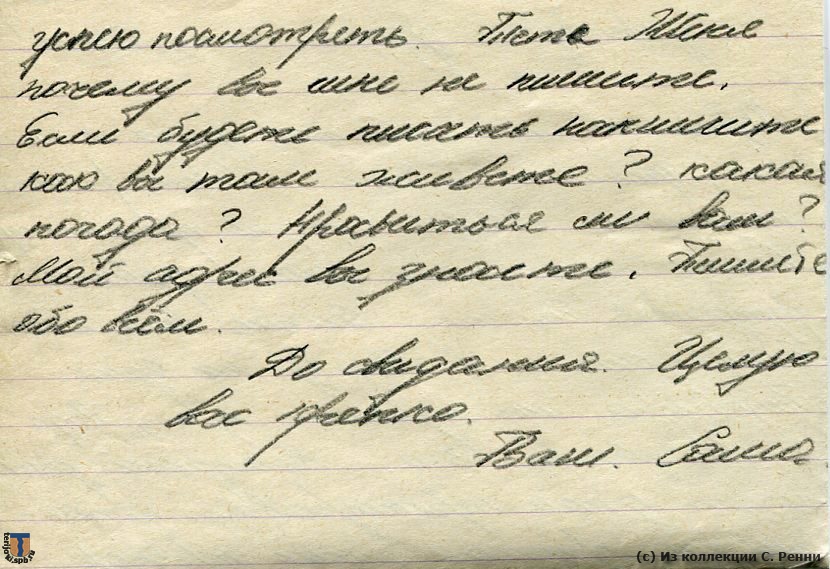 успею посмотреть. Тетя Женя
почему вы мне не пишите.
Если будете писать напишите
как вы там живете? какая
погода? Нравиться ли вам?
Мой адрес вы знаете. Пишите
обо всём.
До свидания. Целую
вас крепко.
Ваш. Саша.
terijoki.spb.ru
(c) Из коллекции С. Ренни